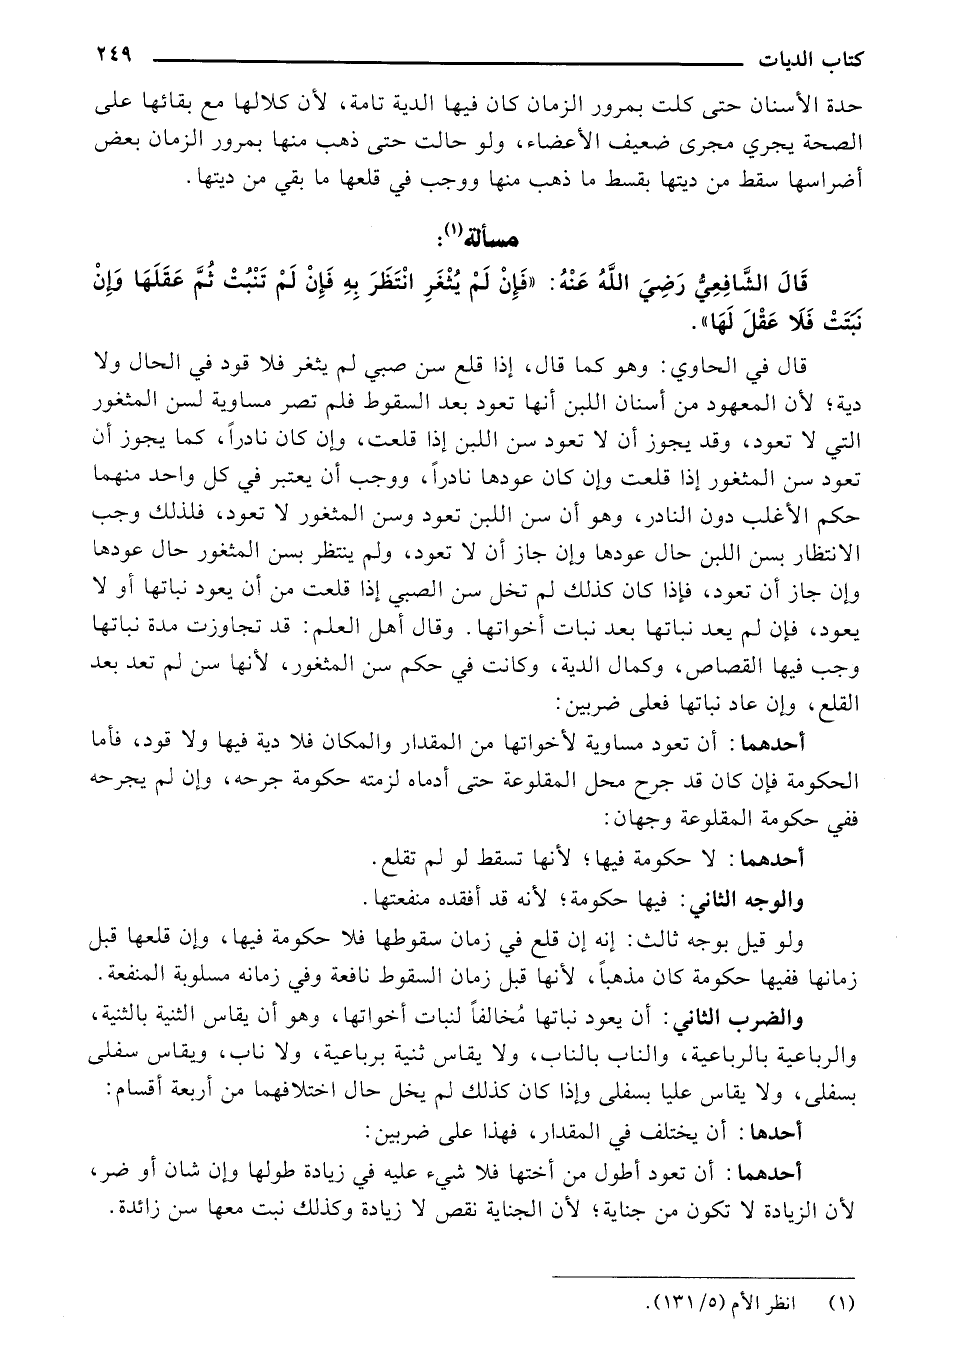 كتاب الديات ٢٤٩
حدة الأسنان حتى كلت بمرور الزمان كان فيها الدية تامة، لأن كلالها مع بقائها على
الصحة يجري مجرى ضعيف الأعضاء، ولو حالت حتى ذهب منها بمرور الزمان بعض
أضراسها سقط من ديتها بقسط ما ذهب منها ووجب في قلعها ما بقي من ديتها.
مسألة(١):
قَالَ الشَّافِعِيُّ رَضِيَ اللَّهُ عَنْهُ: «فَإِنْ لَمْ يُثْغَرِ انْتَظَرَ بِهِ فَإِنْ لَمْ تَنْبُتْ ثُمَّ عَقَلَهَا وَإِنْ
نَبَتَتْ فَلَا عَقْلَ لَهَا».
قال في الحاوي: وهو كما قال، إذا قلع سن صبي لم يثغر فلا قود في الحال ولا
دية؛ لأن المعهود من أسنان اللبن أنها تعود بعد السقوط فلم تصر مساوية لسن المثغور
التي لا تعود، وقد يجوز أن لا تعود سن اللبن إذا قلعت، وإن كان نادراً، كما يجوز أن
تعود سن المثغور إذا قلعت وإن كان عودها نادراً، ووجب أن يعتبر في كل واحد منهما
حكم الأغلب دون النادر، وهو أن سن اللبن تعود وسن المثغور لا تعود، فلذلك وجب
الانتظار بسن اللبن حال عودها وإن جاز أن لا تعود، ولم ينتظر بسن المثغور حال عودها
وإن جاز أن تعود، فإذا كان كذلك لم تخل سن الصبي إذا قلعت من أن يعود نباتها أو لا
يعود، فإن لم يعد نباتها بعد نبات أخواتها. وقال أهل العلم: قد تجاوزت مدة نباتها
وجب فيها القصاص، وكمال الدية، وكانت في حكم سن المثغور، لأنها سن لم تعد بعد
القلع، وإن عاد نباتها فعلى ضربين:
أحدهما: أن تعود مساوية لأخواتها من المقدار والمكان فلا دية فيها ولا قود، فأما
الحكومة فإن كان قد جرح محل المقلوعة حتى أدماه لزمته حكومة جرحه، وإن لم يجرحه
ففي حكومة المقلوعة وجهان:
أحدهما: لا حكومة فيها؛ لأنها تسقط لو لم تقلع.
والوجه الثاني: فيها حكومة؛ لأنه قد أفقده منفعتها.
ولو قيل بوجه ثالث: إنه إن قلع في زمان سقوطها فلا حكومة فيها، وإن قلعها قبل
زمانها ففيها حكومة كان مذهباً، لأنها قبل زمان السقوط نافعة وفي زمانه مسلوبة المنفعة.
والضرب الثاني: أن يعود نباتها مُخالفاً لنبات أخواتها، وهو أن يقاس الثنية بالثنية،
والرباعية بالرباعية، والناب بالناب، ولا يقاس ثنية برباعية، ولا ناب، ويقاس سفلى
بسفلى، ولا يقاس عليا بسفلى وإذا كان كذلك لم يخل حال اختلافهما من أربعة أقسام:
أحدها: أن يختلف في المقدار، فهذا على ضربين:
أحدهما: أن تعود أطول من أختها فلا شيء عليه في زيادة طولها وإن شان أو ضر،
لأن الزيادة لا تكون من جناية؛ لأن الجناية نقص لا زيادة وكذلك نبت معها سن زائدة.
(١) انظر الأم (٥/ ١٣١).